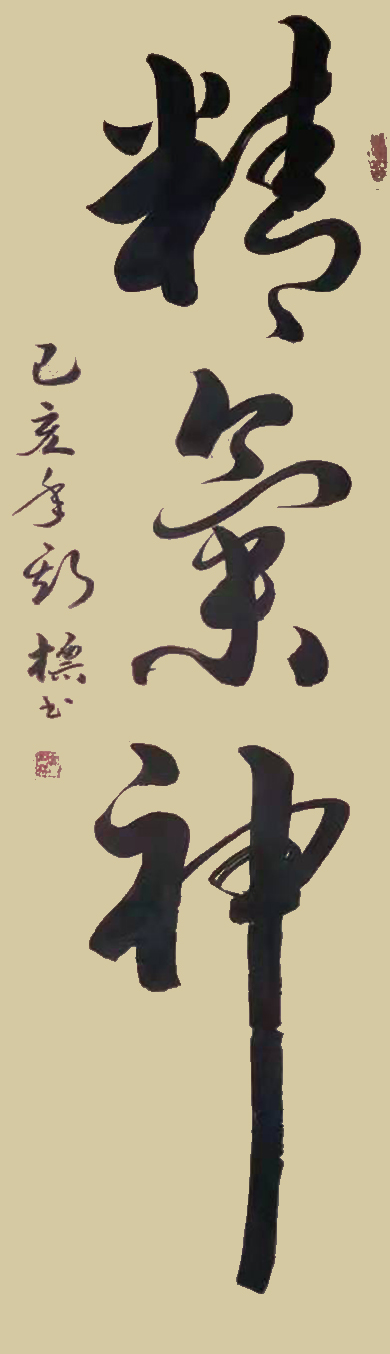 精氣神
己亥年
標书